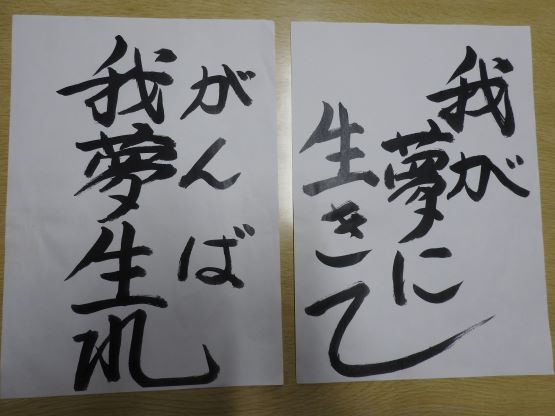 我が
夢に
生きて
がんば
我夢生れ